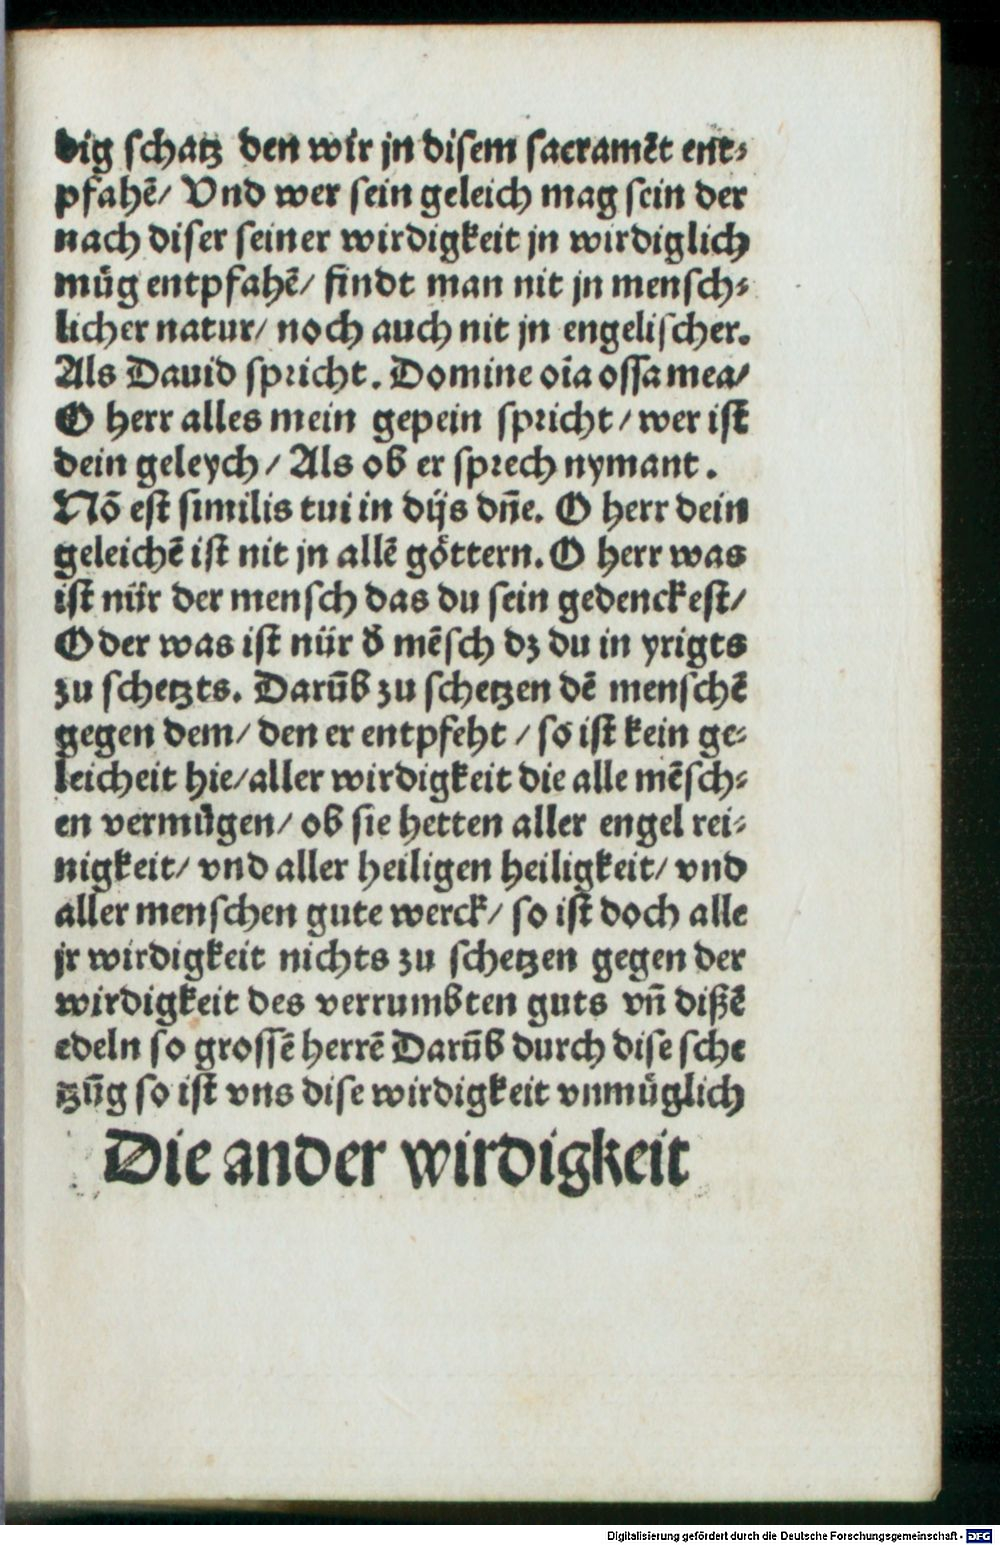 dig schatz den wir jn disem sacramēt ent⸗
pfahē/ Vnd wer sein geleich mag sein der
nach diser seiner wirdigkeit jn wirdiglich
müg entpfahē/ findt man nit jn mensch⸗
licher natur/ noch auch nit jn engelischer.
Als Dauid spricht. Domine oīa ossa mea/
O herr alles mein gepein spricht/ wer ist
dein geleych/ Als ob er sprech nymant.
Nō est similis tui in dijs dn̄e. O herr dein
geleichē ist nit jn allē göttern. O herr was
ist nür der mensch das du sein gedenckest/
Oder was ist nür d̄ mēsch dz du in yrigts
zu schetzts. Darūb zu schetzen dē menschē
gegen dem/ den er entpfeht/ so ist kein ge⸗
leicheit hie/ aller wirdigkeit die alle mēsch⸗
en vermügen/ ob sie hetten aller engel rei⸗
nigkeit/ vnd aller heiligen heiligkeit/ vnd
aller menschen gute werck/ so ist doch alle
jr wirdigkeit nichts zu schetzen gegen der
wirdigkeit des verrumbten guts vn̄ dißē
edeln so grossē herrē Darūb durch dise sche
tzūg so ist vns dise wirdigkeit vnmüglich
Die ander wirdigkeit
Digitalisierung gefördert durch die Deutsche Forschungsgemeinschaft - DFG